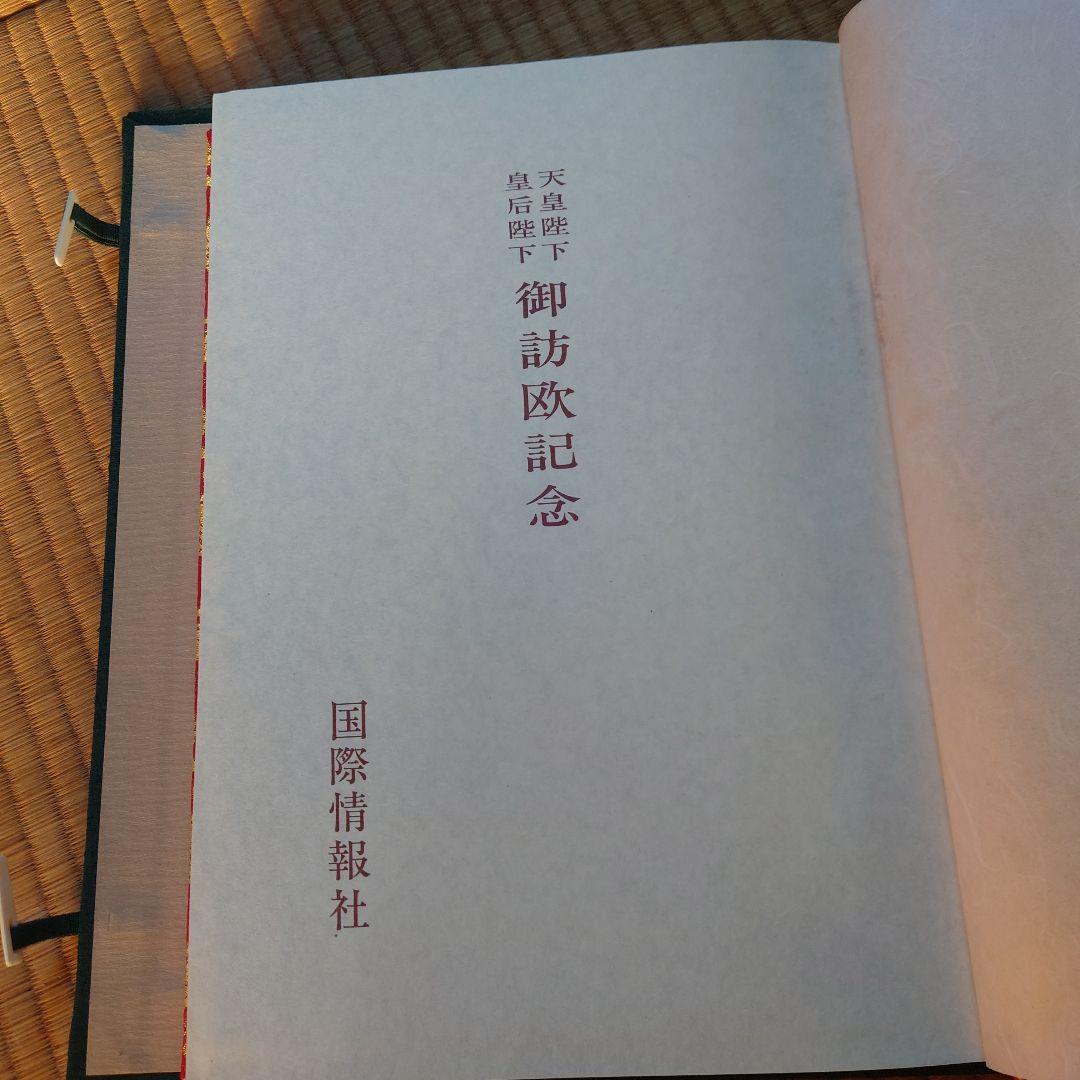 天皇陛下
皇后陛下
御訪欧記念
国際情報社